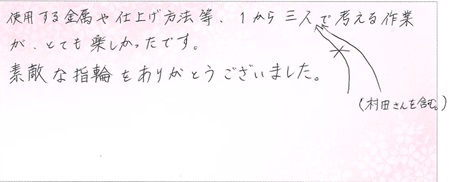 使用する金属や仕上げ方法等、1から三人で考える作業
が、とても楽しかったです。
素敵な指輪をありがとうございました。
(村田さんを含む。)